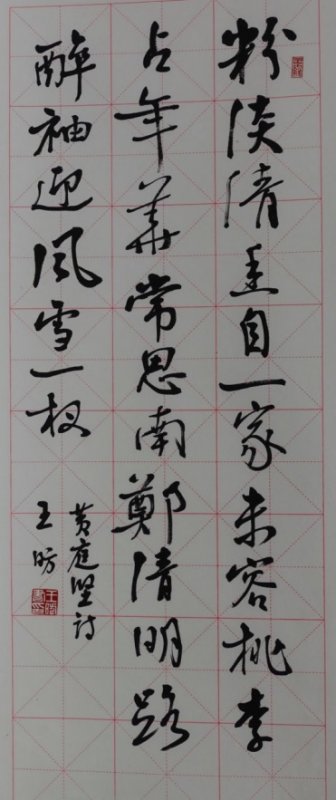 粉淡清香自一家未容桃李
占年華常思南鄭清明路
醉袖迎風雪一杈
黄庭坚诗
王昉